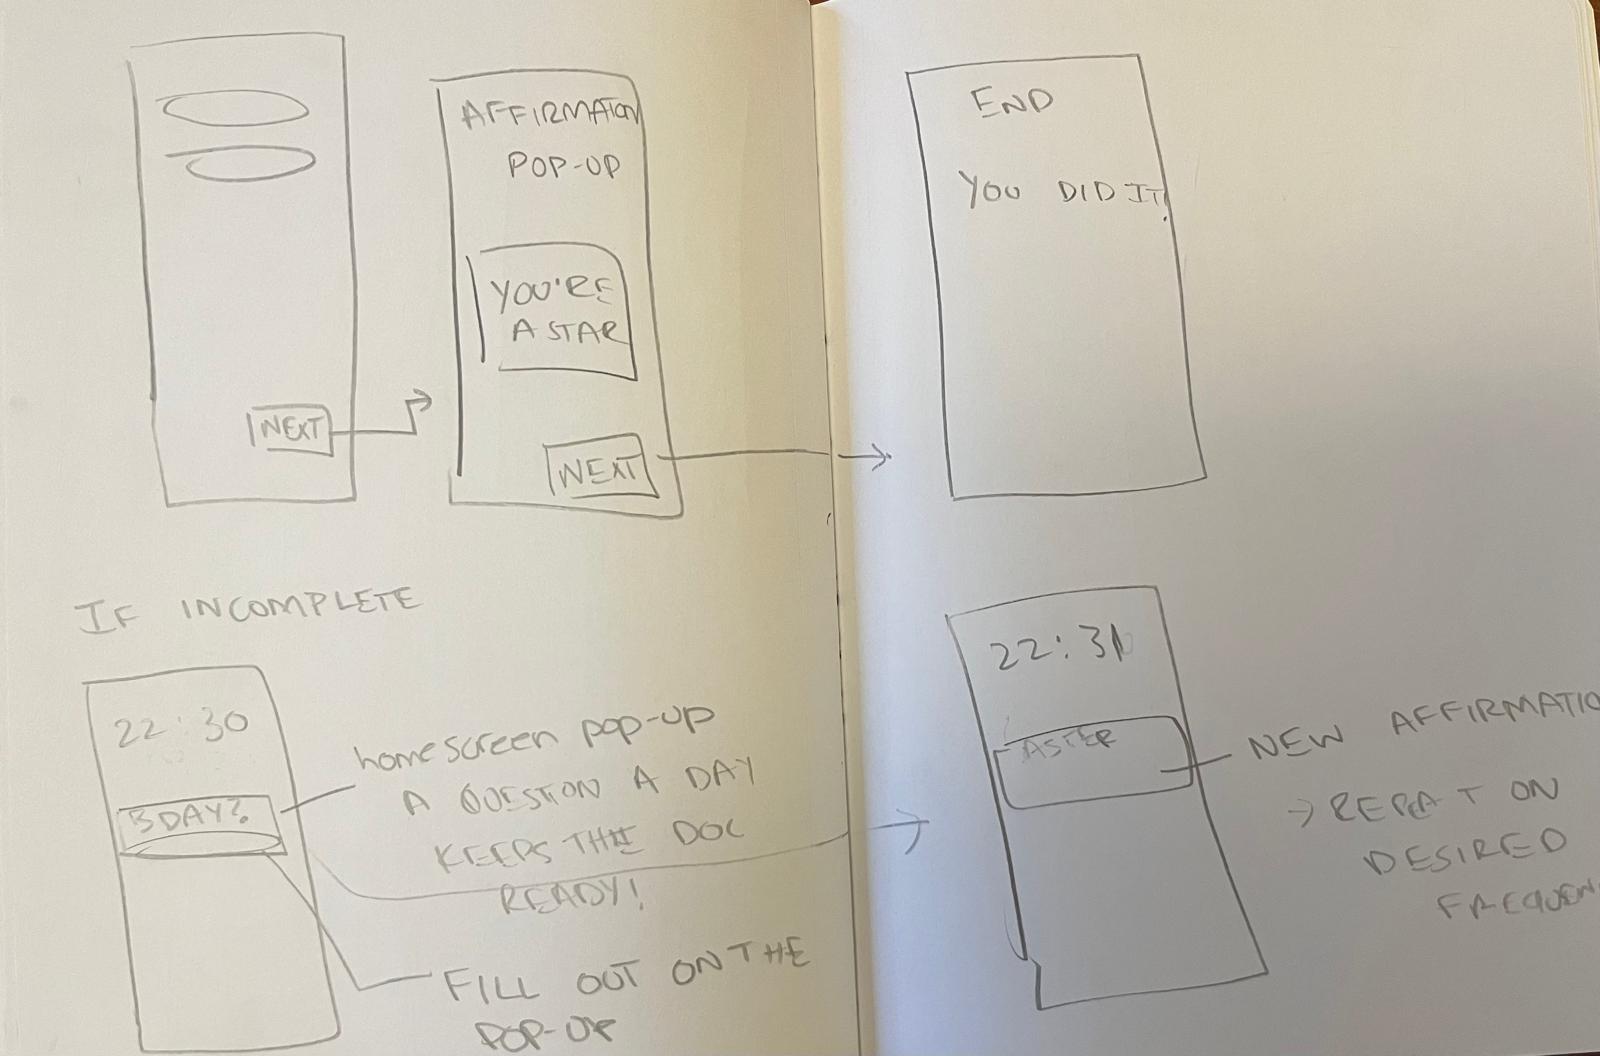 AFFIRMATION
POP-UP
YOU'RE
A STAR
NEXT
NEXT
END
YOU DID IT!
IF INCOMPLETE
22:30
BDAY?
homescreen pop-up
A QUESTION A DAY
KEEPS THE DOC
READY!
FILL OUT ON THE
POP-UP
22:31
NEW AFFIRMATIO
→ REPEAT ON
DESIRED
FREQUEN